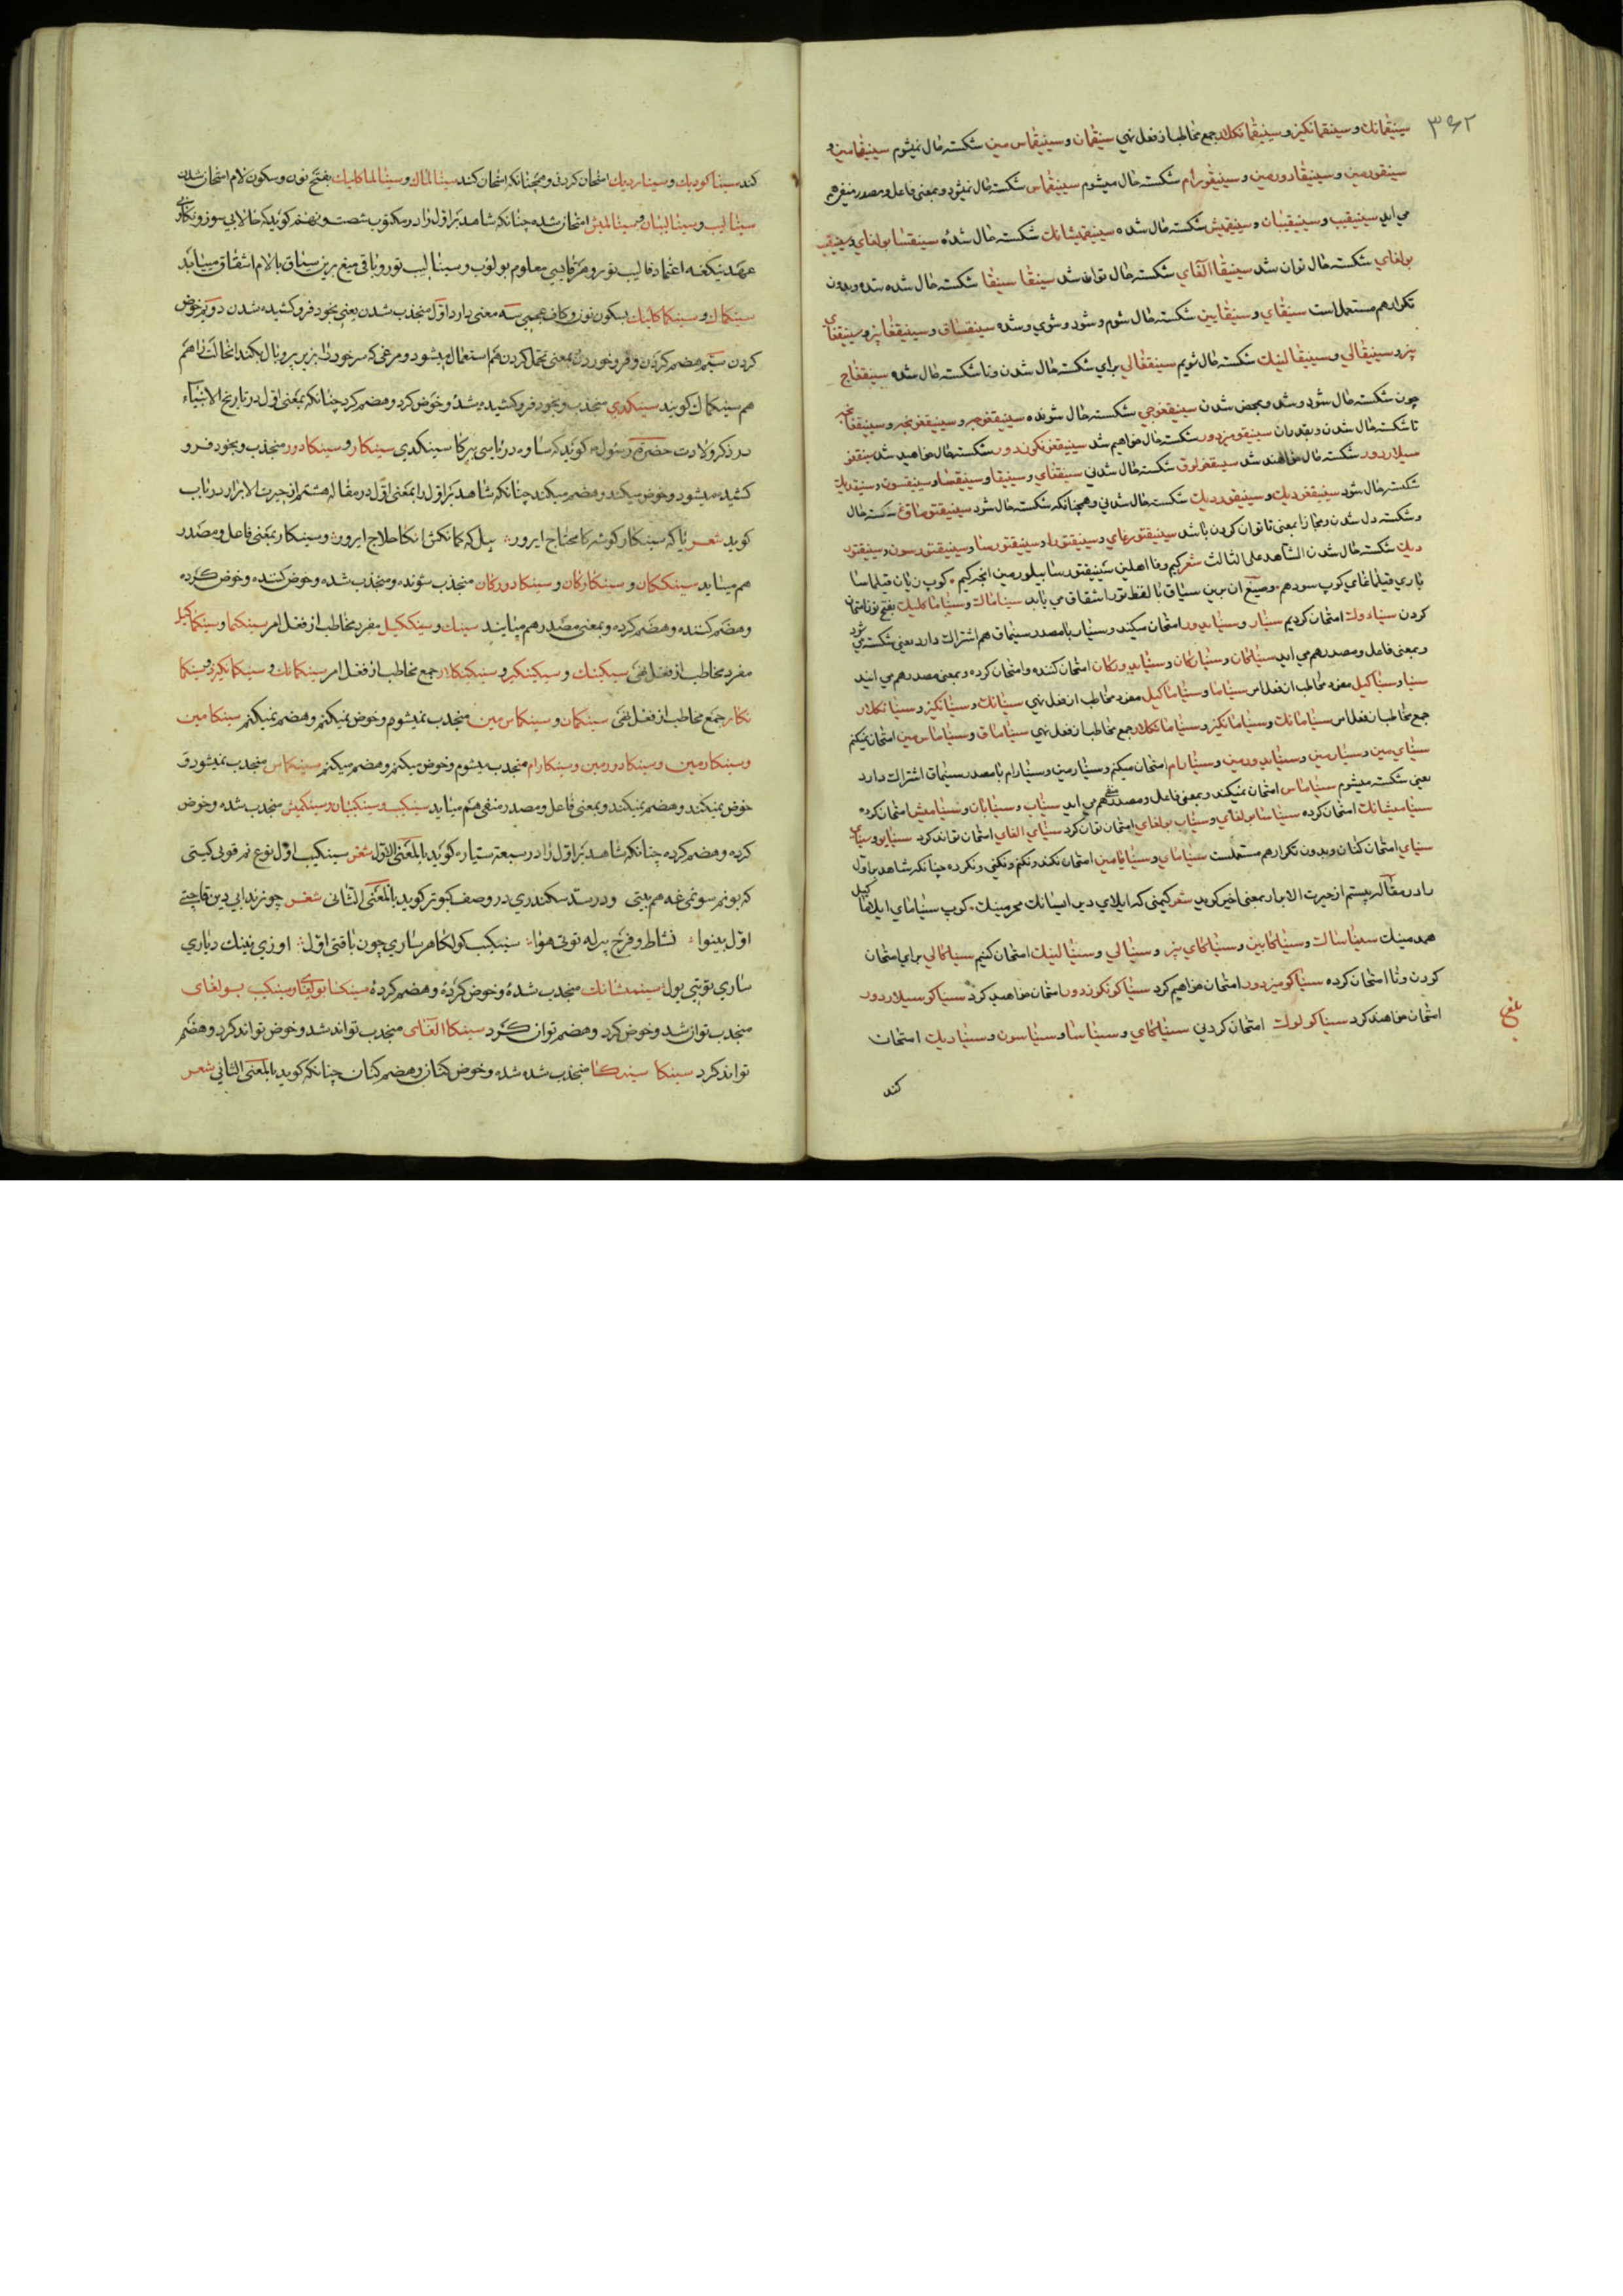 ۳۶۲
سینیقمانك و سینیقمانکیز و سینیقمانکلار جمع مخاطب از فعل نهی سینیقمان و سینیقماس مین شکسته حال نمیشوم سینیقامین و
سینیقورمین و سینیقادورمین و سینیقورام شکسته حال میشوم سینیقماس شکسته حال نمیشود و بمعنی فاعل و مصدر منفی هم
می اید سینیقیب و سینیقیبان و سینیقمیش شکسته حال شده سینیقمیشانك شکسته حال شدهٔ سینیقسا بولغای و سینیقیب
بولغای شکسته حال توان شد سینیقا القای شکسته حال تواند شد سینیقا سینیقا شکسته حال شده شده و بدون
تکرار هم مستعمل است سینیقای و سینیقایین شکسته حال شوم و شود و شوی و شده سینیقساق و سینیقغایز و سینیقغای
یز و سینیقالی و سینیقالینك شکسته حال شویم سینیقغالی برای شکسته حال شدن و تا شکسته حال شده سینیقغاج
چون شکسته حال شود و شد و بمحض شدن سینیقغوجی شکسته حال شونده سینیقغونجه و سینیقغونچه و سینیقغانچه
تا شکسته حال شدن و بقدر ان سینیقومیزدور شکسته حال خواهیم شد سینیقغونکوزدور شکسته حال خواهید شد سینیقغو
سیلاردور شکسته حال خواهند شد سینیقغولوق شکسته حال شدنی سینیقغای و سینیقا و سینیقسا و سینیقسون و سینیقدیك
شکسته حال شود سینیقغودیك و سینیقوردیك شکسته حال شدنی و همچنانکه شکسته حال شود سینیقتورماق شکسته حال
و شکسته دل شدن و مجازا بمعنی ناتوان کردن باشد سینیقتورغای و سینیقتورا و سینیقتورسا و سینیقتورسون و سینیقتور
دیك شکسته حال شدن الشاهد علی الثالث شعر کیم وفا اهلین سینیقتورسا بیلورمین انجه کیم کوپ زیان قیلماسا
باری قیلماغای کوپ سود هم و صیغ ان برین سیاق با لفظ تور اشتقاق می یابد سیناماك و سیناماكلیك بفتح نون امتحان
کردن سینادوك امتحان کردیم سینار و سینایدور امتحان میکند و سینار با مصدر سینماق هم اشتراك دارد یعنی شکسته می شود
و بمعنی فاعل و مصدر هم می اید سیناکان و سینارکان و سینایدورکان امتحان کننده و امتحان کرده و بمعنی مصدر هم می ایند
سینا و سیناکیل مفرد مخاطب از فعل امر سیناما و سیناماکیل مفرد مخاطب از فعل نهی سینانك و سینانکیز و سینانکلار
جمع مخاطب از فعل امر سینامانك و سینامانکیز و سینامانکلار جمع مخاطب از فعل نهی سیناماق و سیناماس مین امتحان نمیکنم
سینای مین و سینارمین و سینایدورمین و سینارام امتحان میکنم و سینارمین و سینارام با مصدر سینماق اشتراك دارد
یعنی شکسته میشوم سیناماس امتحان نمیکند و بمعنی فاعل و مصدر منفی هم می اید سیناب و سینابان و سینامیش امتحان کرده
سینامیشانك امتحان کردهٔ سیناسا بولغای و سیناب بولغای امتحان توان کرد سینای القای امتحان تواند کرد سینایو و سینای
سینای امتحان کنان و بدون تکرار هم مستعملست سینامای و سینامایین امتحان نکند و نکنم و نکنی و نکرده چنانکه شاهد بر اول
را در مقاله بیستم از حیرت الابرار بمعنی اخیر کوید شعر کیمنی که ایلای دیب اسانك محرمینك کوپ سینامای ایلاما کیل
همدمینك سیناساك و سیناکایین و سیناکای یز و سینالی و سینالینك امتحان کنیم سیناکالی برای امتحان
کردن و تا امتحان کرده سیناکومیزدور امتحان خواهیم کرد سیناکونکوزدور امتحان خواهید کرد سیناکوسیلاردور
امتحان خواهند کرد سیناکولوك امتحان کردنی سیناکای و سیناسا و سیناسون و سینادیك امتحان
کند
کند سیناکودیك و سیناردیك امتحان کردنی و همچنانکه امتحان کند سینالماك و سینالماکلیك بفتح نون و سکون لام امتحان شدن
سینالیب و سینالیبان و سینالمیش امتحان شده چنانکه شاهد بر اول را در مکتوب شصت و نهم کوید که حالا بی سوز و نکاری
عهد ینکغه اعتماد قالیب تورور هر قایسی معلوم بولوب و سینالیب تورور و باقی صیغ برین سیاق با لام اشتقاق مییابد
سینکماك و سینکماکلیك بسکون نون و کاف عجمی سه معنی دارد اول منجذب شدن یعنی بخود فرو کشیده شدن دویم خوض
کردن سیم هضم کردن و فرو خوردن بمعنی تحمل کردن هم استعمال میشود و مرغی که سر خود را بزیر پر و بال بکند انحالت را هم
هم سینکماك کویند سینکدی منجذب و بخود فرو کشیده شد و خوض کرد و هضم کرد چنانکه بمعنی اول در تاریخ الانبیاء
در ذکر ولادت حضرت رسول کوید که ساوه دریاسی یرکا سینکدی سینکار و سینکادور منجذب و بخود فرو
کشیده میشود و خوض میکند و هضم میکند چنانکه شاهد بر اول را بمعنی اول در مقاله هشتم از حیرت الابرار در باب
کوید شعر یا که سینکار کوشه کا محتاج ایرور بیل که کمانکش انکا حلاج ایرور و سینکار بمعنی فاعل و مصدر
هم میاید سینککان و سینکارکان و سینکادورکان منجذب شونده و منجذب شده و خوض کننده و خوض کرده
و هضم کننده و هضم کرده و بمعنی مصدر هم میایند سینك و سینککیل مفرد مخاطب از فعل امر سینکما و سینکماکیل
مفرد مخاطب از فعل نهی سینکینك و سینکینکیز و سینکینکلار جمع مخاطب از فعل امر سینکمانك و سینکمانکیز و سینکما
نکلار جمع مخاطب از فعل نهی سینکمان و سینکماس مین منجذب نمیشوم و خوض نمیکنم و هضم نمیکنم سینکامین
و سینکارمین و سینکادورمین و سینکارام منجذب میشوم و خوض میکنم و هضم میکنم سینکماس منجذب نمیشود و
خوض نمیکند و هضم نمیکند و بمعنی فاعل و مصدر منفی هم میاید سینکیب و سینکیبان و سینکمیش منجذب شده و خوض
کرده و هضم کرده چنانکه شاهد بر اول را در سبعه سیاره کوید بالمعنی الاول شعر سینکیب اول نوع نم قویی کیتی
که بو نم سونمی غه هم ییتی و در سد سکندری در وصف کبوتر کوید بالمعنی الثانی شعر
اول بینوا نشاط و فرح بیرله توتی هوا سینکیب کولکالار ساری چون باقتی اول اوزی نینك دیاری
ساری توتتی یول سینکمیشانك منجذب شدهٔ و خوض کردهٔ و هضم کردهٔ سینکسا بولغای و سینکیب بولغای
منجذب توان شد و خوض کرد و هضم توان کرد سینکا القای منجذب تواند شد و خوض تواند کرد و هضم
تواند کرد سینکا سینکا منجذب شده شده و خوض کنان و هضم کنان چنانکه کوید بالمعنی الثانی شعر